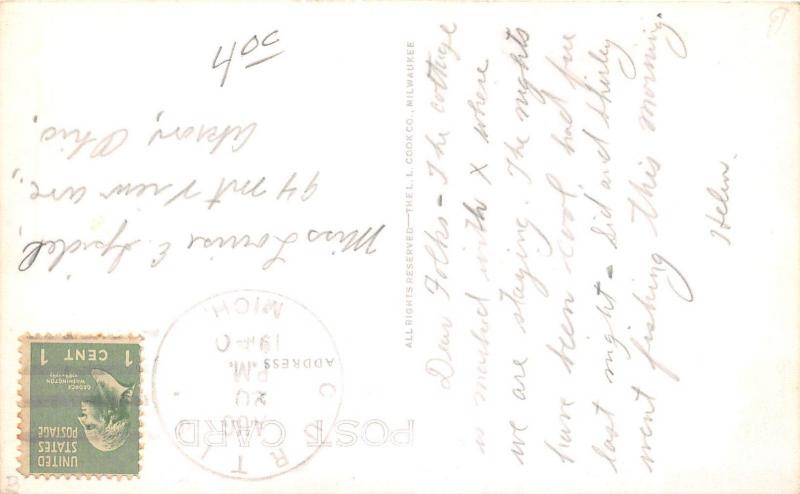 POST CARD
ADDRESS
Dear Folks - The cottage
is marked with X where
we are staying. The nights
have been cool had fire
last night - Sid and Shirley
went fishing this morning.
Helen.
ALL RIGHTS RESERVED—THE L. L. COOK CO., MILWAUKEE
UNITED
STATES
POSTAGE
GEORGE
WASHINGTON
1 CENT 1
AUG
20
P.M.
1940
MICH.
Miss Louise E. Speidel,
94 Mt View ave,
Akron, Ohio,
40c